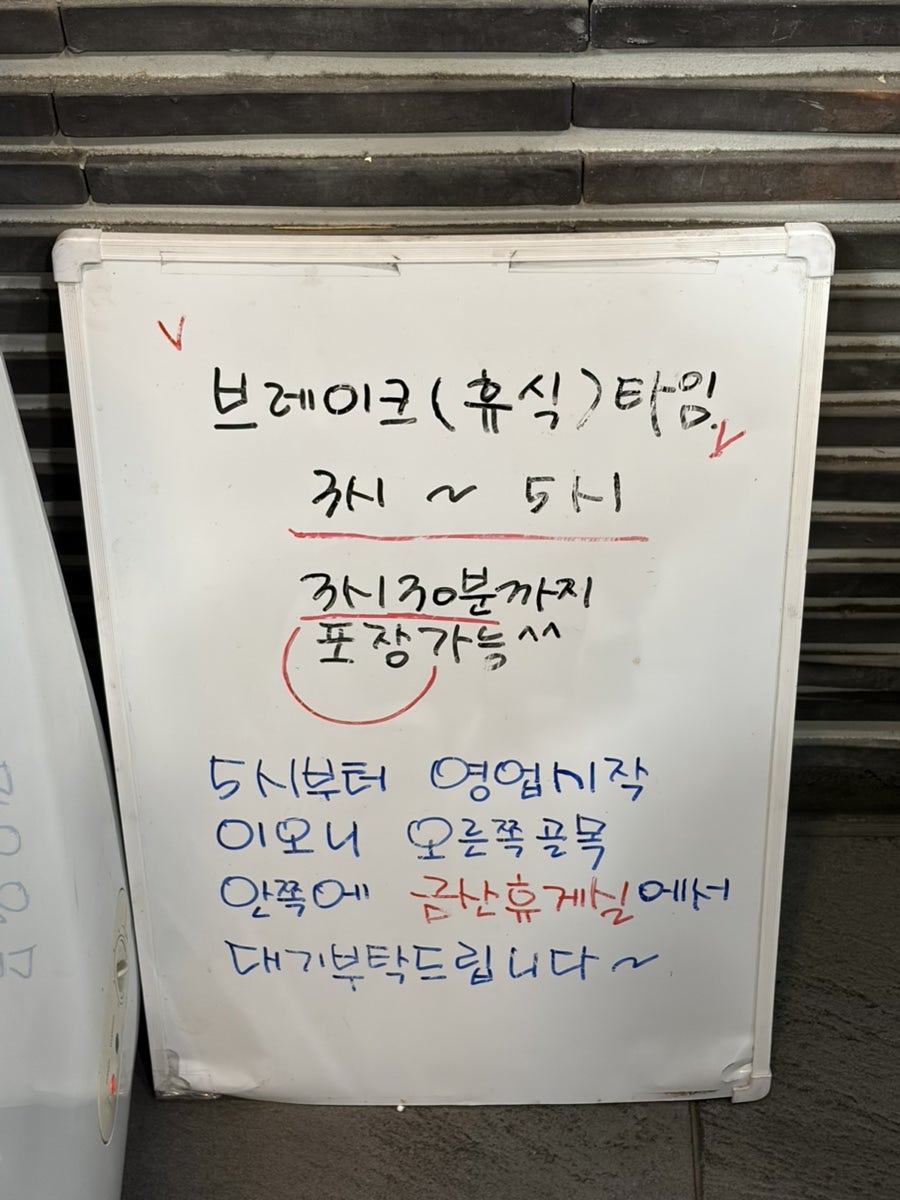 브레이크(휴식)타임.
3시 ~ 5시
3시30분까지
포장가능^^
5시부터 영업시작
이오니 오른쪽골목
안쪽에 금산휴게실에서
대기부탁드립니다~